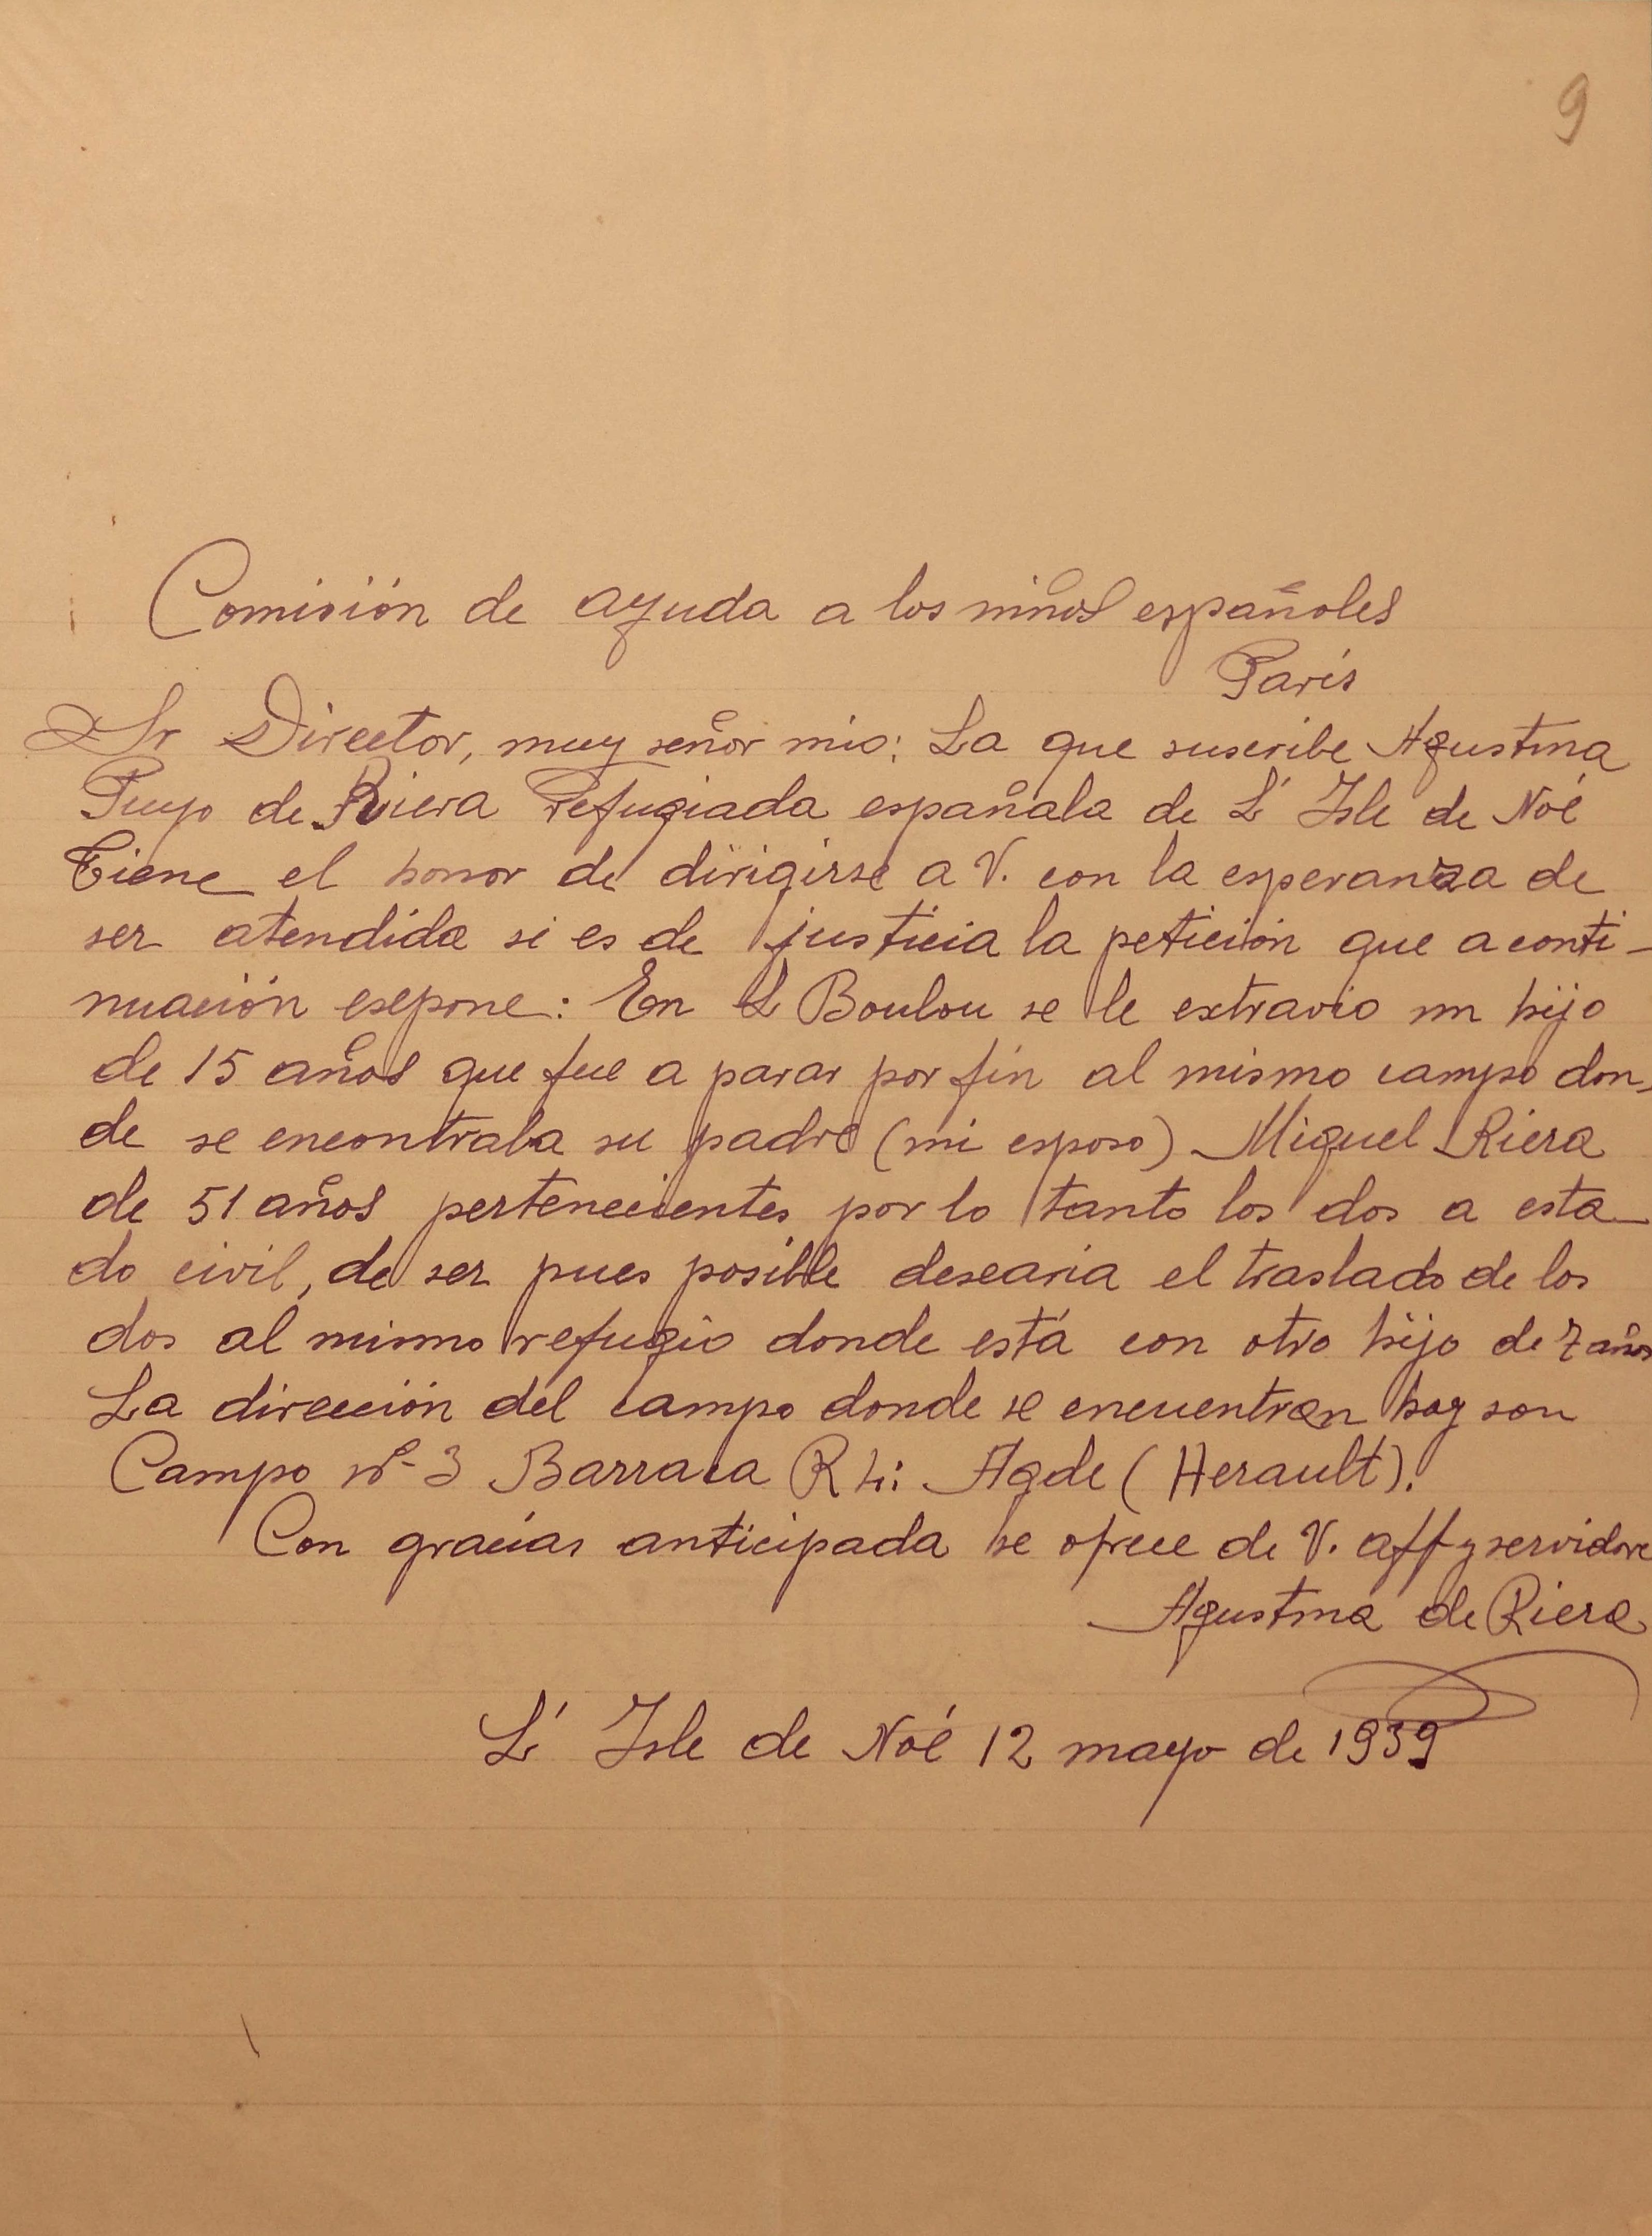 9
Comisión de ayuda a los niños españoles
París
Sr Director, muy señor mio: La que suscribe Agustina
Puyo de Riera refugiada españala de L' Isle de Noé
tiene el honor de dirigirse a V. con la esperanza de
ser atendida si es de justicia la petición que a conti-
nuación expone: En L Boulou se le extravio un hijo
de 15 años que fue a parar por fin al mismo campo don-
de se encontraba su padre (mi esposo) Miguel Riera
de 51 años pertenecientes por lo tanto los dos a esta-
do civil, de ser pues posible desearia el traslado de los
dos al mismo refugio donde está con otro hijo de 7 años
La dirección del campo donde se encuentran hoy son
Campo nº 3 Barraca R 4: Agde (Herault).
Con gracias anticipada se ofrece de V. aff y servidora
Agustina de Riera
L' Isle de Noé 12 mayo de 1939